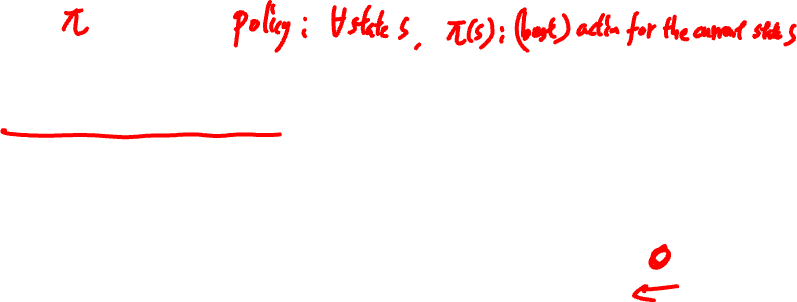 π policy : ∀ state s, π(s) : (best) action for the current state s
0
←